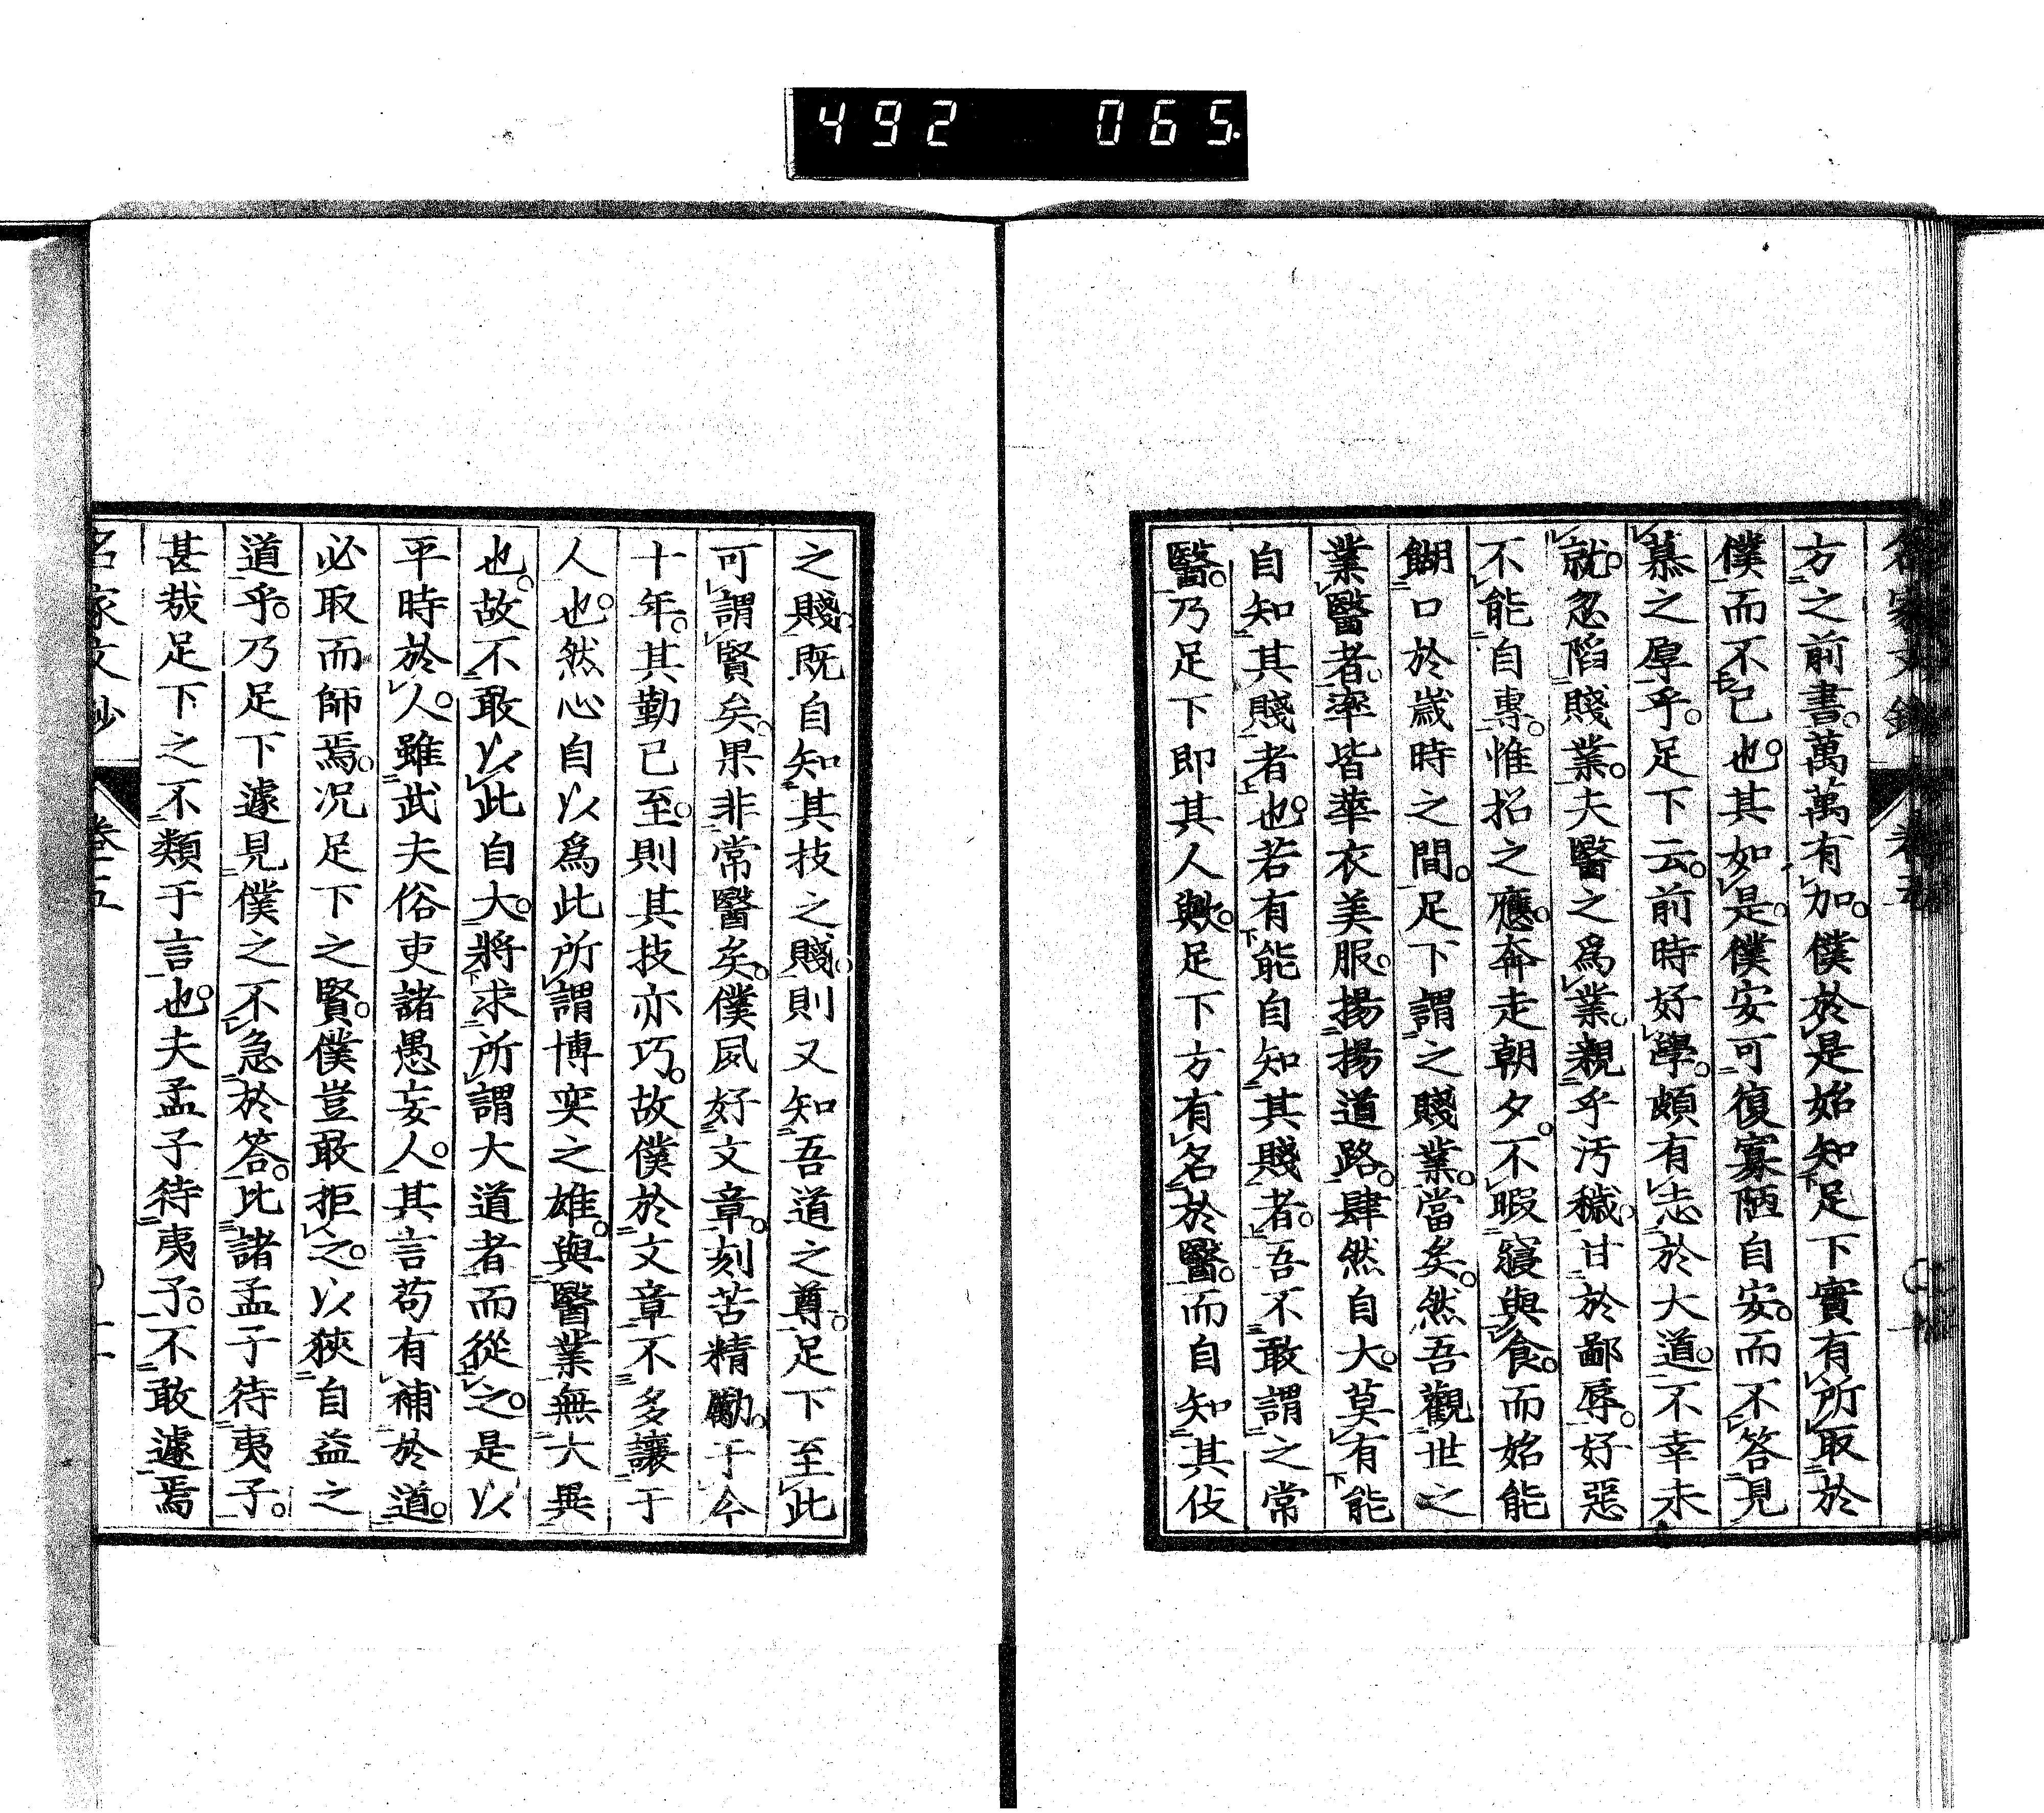 492 065
方之前書。萬萬有加。僕於是始知足下實有所取於
僕而不已也。其如是。僕安可復寡陋自安。而不答見
慕之厚乎。足下云。前時好學。頗有志於大道。不幸未
就。忽陷賤業。夫醫之爲業。親乎汚穢。甘於鄙辱。好惡
不能自專。惟招之應。奔走朝夕。不暇寢與食。而始能
餬口於歳時之間。足下謂之賤業。當矣。然吾觀世之
業醫者。率皆華衣美服。揚揚道路。肆然自大。莫有能
自知其賤者也。若有能自知其賤者。吾不敢謂之常
醫。乃足下即其人歟。足下方有名於醫。而自知其伎
之賤。既自知其技之賤。則又知吾道之尊。足下至此
可謂賢矣。果非常醫矣。僕夙好文章。刻苦精勵。于今
十年。其勤已至。則其技亦巧。故僕於文章。不多讓于
人也。然心自以爲此所謂博奕之雄。與醫業無大異
也。故不敢以此自大。將求所謂大道者而從之。是以
平時於人。雖武夫俗吏諸愚妄人。其言苟有補於道。
必取而師焉。况足下之賢。僕豈敢拒之。以狹自益之
道乎。乃足下遽見僕之不急於答。比諸孟子待夷子。
甚哉足下之不類于言也。夫孟子待夷子。不敢遽焉
名家文抄 卷五